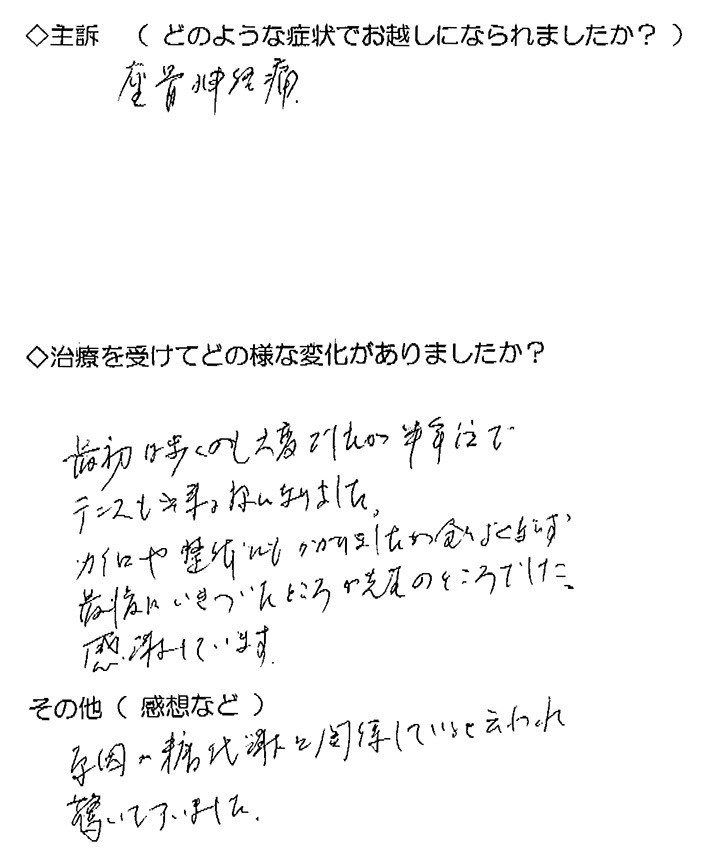 ◇主訴　( どのような症状でお越しになられましたか? )
座骨神経痛
◇治療を受けてどの様な変化がありましたか?
最初は歩くのも大変でしたが半年位で
テニスも出来る様になりました。
カイロや整体にもかかりましたが全くよくならず
最後にいきついたところが先生のところでした。
感謝しています。
その他 ( 感想など )
原因が糖代謝と関係していると云われ
驚いていました。